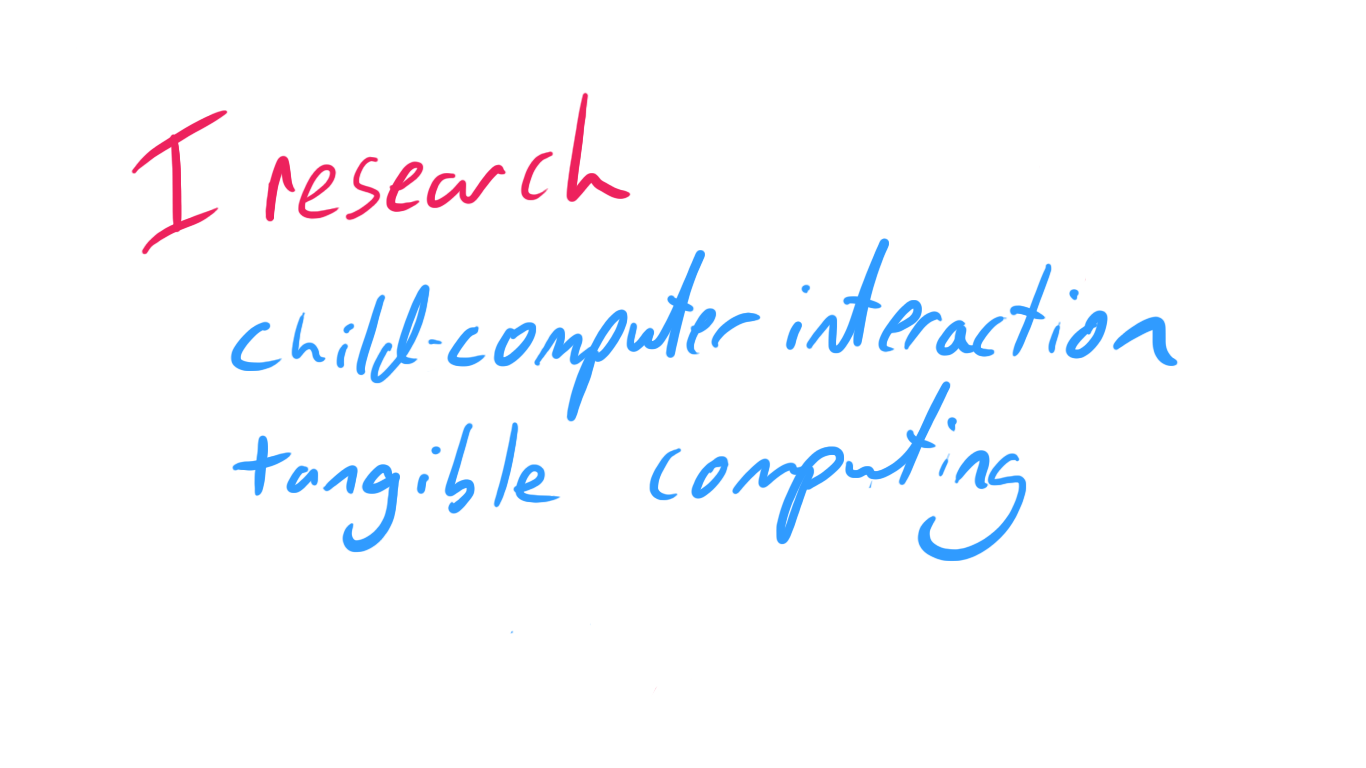 I research
child-computer interaction
tangible computing